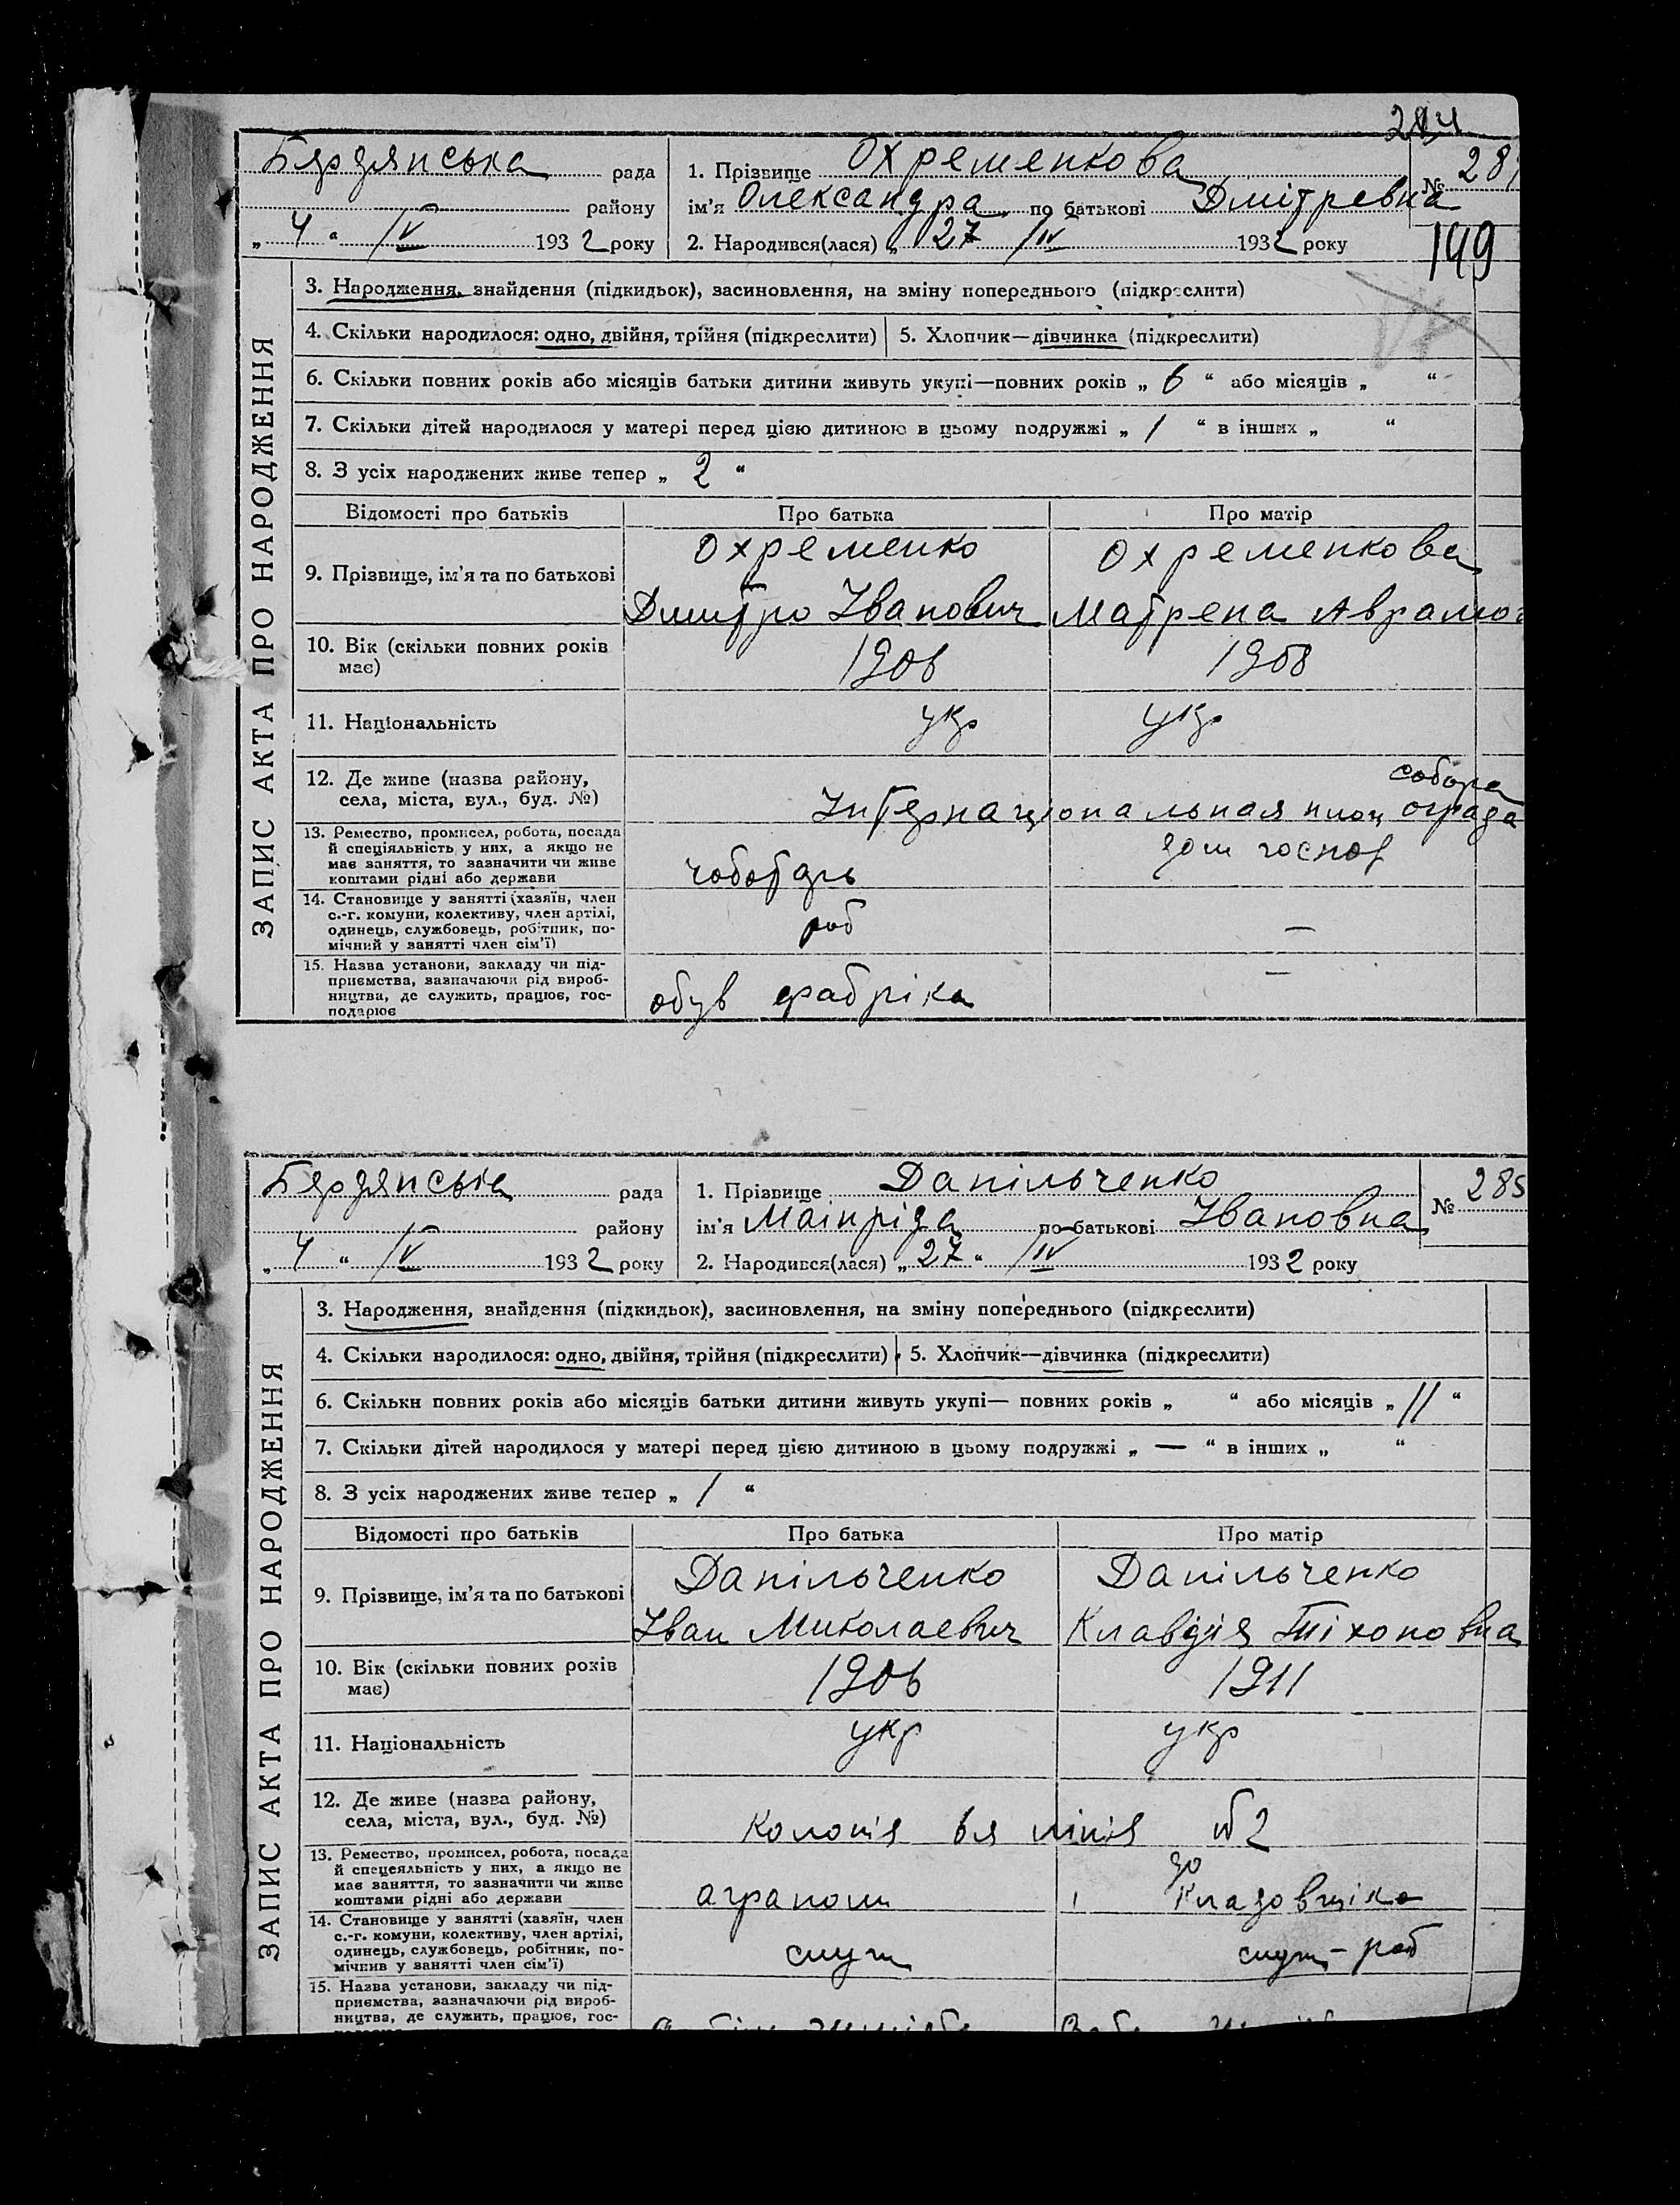 Бердянська рада
району
„ 4 “ IV 1932 року
1. Прізвище Охременкова
ім'я Олександра по батькові Дмітревна
2. Народився(лася) „ 27 /IV 1932 року
№ 28
149
ЗАПИС АКТА ПРО НАРОДЖЕННЯ
3. Народження, знайдення (підкидьок), засиновлення, на зміну попереднього (підкреслити)
4. Скільки народилося: одно, двійня, трійня (підкреслити) 5. Хлопчик—дівчинка (підкреслити)
6. Скільки повних років або місяців батьки дитини живуть укупі—повних років „ 6 “ або місяців „ “
7. Скільки дітей народилося у матері перед цією дитиною в цьому подружжі „ 1 “ в інших „ “
8. З усіх народжених живе тепер „ 2 “
Відомості про батьків Про батька Про матір
9. Прізвище, ім'я та по батькові
Охременко Охременкова
Дмитро Іванович Матрена Аврамов
10. Вік (скільки повних років
має)
1906 1908
11. Національність укр укр
12. Де живе (назва району,
села, міста, вул., буд. №)
собора
Інтернаціональная площ ограда
13. Ремество, промисел, робота, посада
й спеціяльність у них, а якщо не
має заняття, то зазначити чи живе
коштами рідні або держави
чоботарь дом господ
14. Становище у занятті (хазяїн, член
с.-г. комуни, колективу, член артілі,
одинець, службовець, робітник, по-
мічний у занятті член сім'ї)
роб —
15. Назва установи, закладу чи під-
приємства, зазначаючи рід вироб-
ництва, де служить, працює, гос-
подарює
обув фабріка —
Бердянська рада
району
„ 4 “ IV 1932 року
1. Прізвище Данільченко
ім'я Маінріда по батькові Івановна
2. Народився(лася) „ 27 “ /IV 1932 року
№ 285
ЗАПИС АКТА ПРО НАРОДЖЕННЯ
3. Народження, знайдення (підкидьок), засиновлення, на зміну попереднього (підкреслити)
4. Скільки народилося: одно, двійня, трійня (підкреслити) 5. Хлопчик—дівчинка (підкреслити)
6. Скільки повних років або місяців батьки дитини живуть укупі— повних років „ “ або місяців „ 11 “
7. Скільки дітей народилося у матері перед цією дитиною в цьому подружжі „ — “ в інших „ “
8. З усіх народжених живе тепер „ 1 “
Відомості про батьків Про батька Про матір
9. Прізвище, ім'я та по батькові
Данільченко Данільченко
Іван Миколаевич Клавдія Тіхоновна
10. Вік (скільки повних років
має)
1906 1911
11. Національність укр укр
12. Де живе (назва району,
села, міста, вул., буд. №)
Колонія 6я лінія №2
13. Ремество, промисел, робота, посада
й спецеяльність у них, а якщо не
має заняття, то зазначити чи живе
коштами рідні або держави
аграном до Кладовщіка
14. Становище у занятті (хазяїн, член
с.-г. комуни, колективу, член артілі,
одинець, службовець, робітник, по-
мічнив у занятті член сім'ї)
служ служ – роб
15. Назва установи, закладу чи під-
приємства, зазначаючи рід вироб-
ництва, де служить, працює, гос-